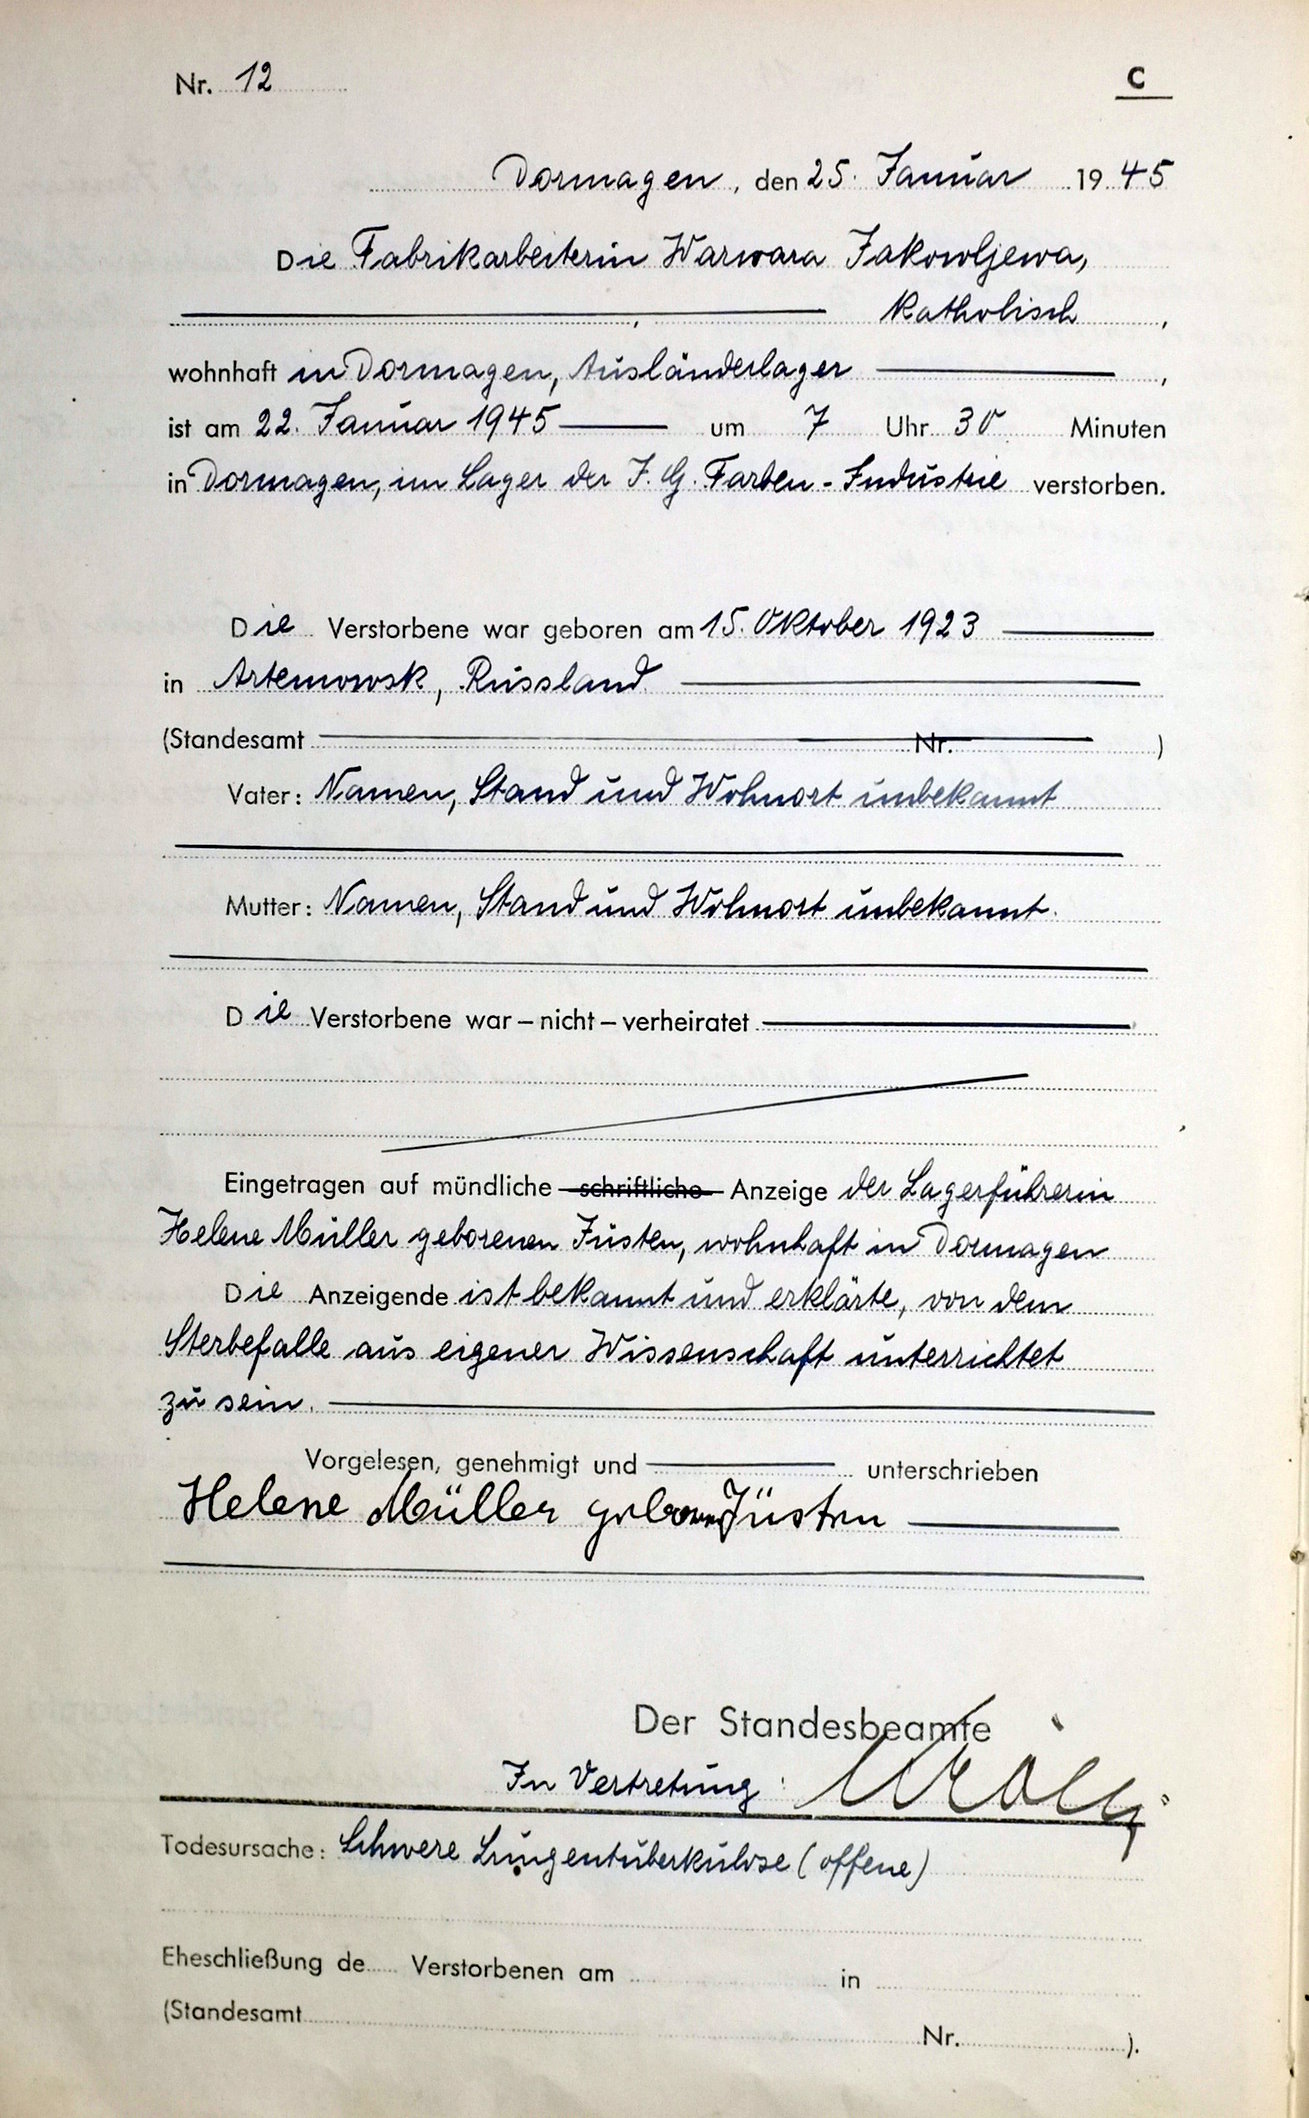 Nr. 12
C
Dormagen, den 25. Januar 1945
Die Fabrikarbeiterin Warwara Jakowljewa,
, katholisch,
wohnhaft in Dormagen, Ausländerlager,
ist am 22. Januar 1945 um 7 Uhr 30 Minuten
in Dormagen, im Lager der I. G. Farben-Industrie verstorben.
Die Verstorbene war geboren am 15. Oktober 1923
in Artemowsk, Russland
(Standesamt Nr. )
Vater: Namen, Stand und Wohnort unbekannt
Mutter: Namen, Stand und Wohnort unbekannt.
Die Verstorbene war – nicht – verheiratet
Eingetragen auf mündliche schriftliche Anzeige der Lagerführerin
Helene Müller geborenen Jüsten, wohnhaft in Dormagen
Die Anzeigende ist bekannt und erklärte, von dem
Sterbefalle aus eigener Wissenschaft unterrichtet
zu sein.
Vorgelesen, genehmigt und unterschrieben
Helene Müller geborene Jüsten
Der Standesbeamte
In Vertretung:
Todesursache: Schwere Lungentuberkulose (offene)
Eheschließung de Verstorbenen am in
(Standesamt
Nr. ).